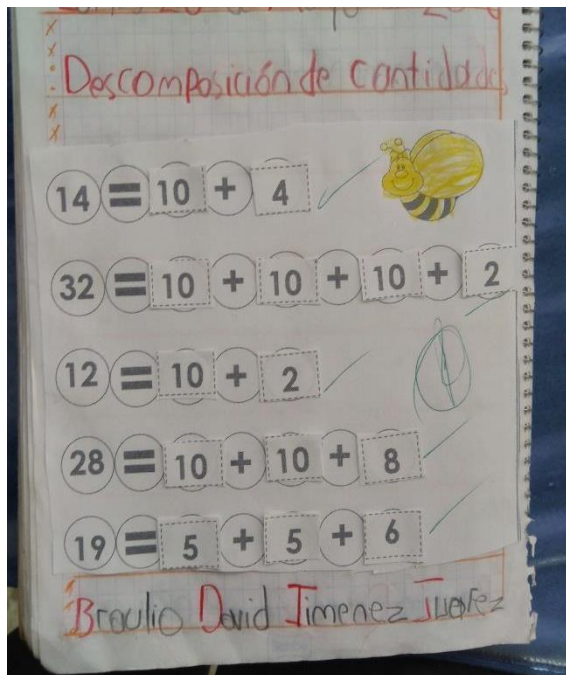 Descomposición de cantidades
14 = 10 + 4
32 = 10 + 10 + 10 + 2
12 = 10 + 2
28 = 10 + 10 + 8
19 = 5 + 5 + 6
Braulio David Jimenez Juarez